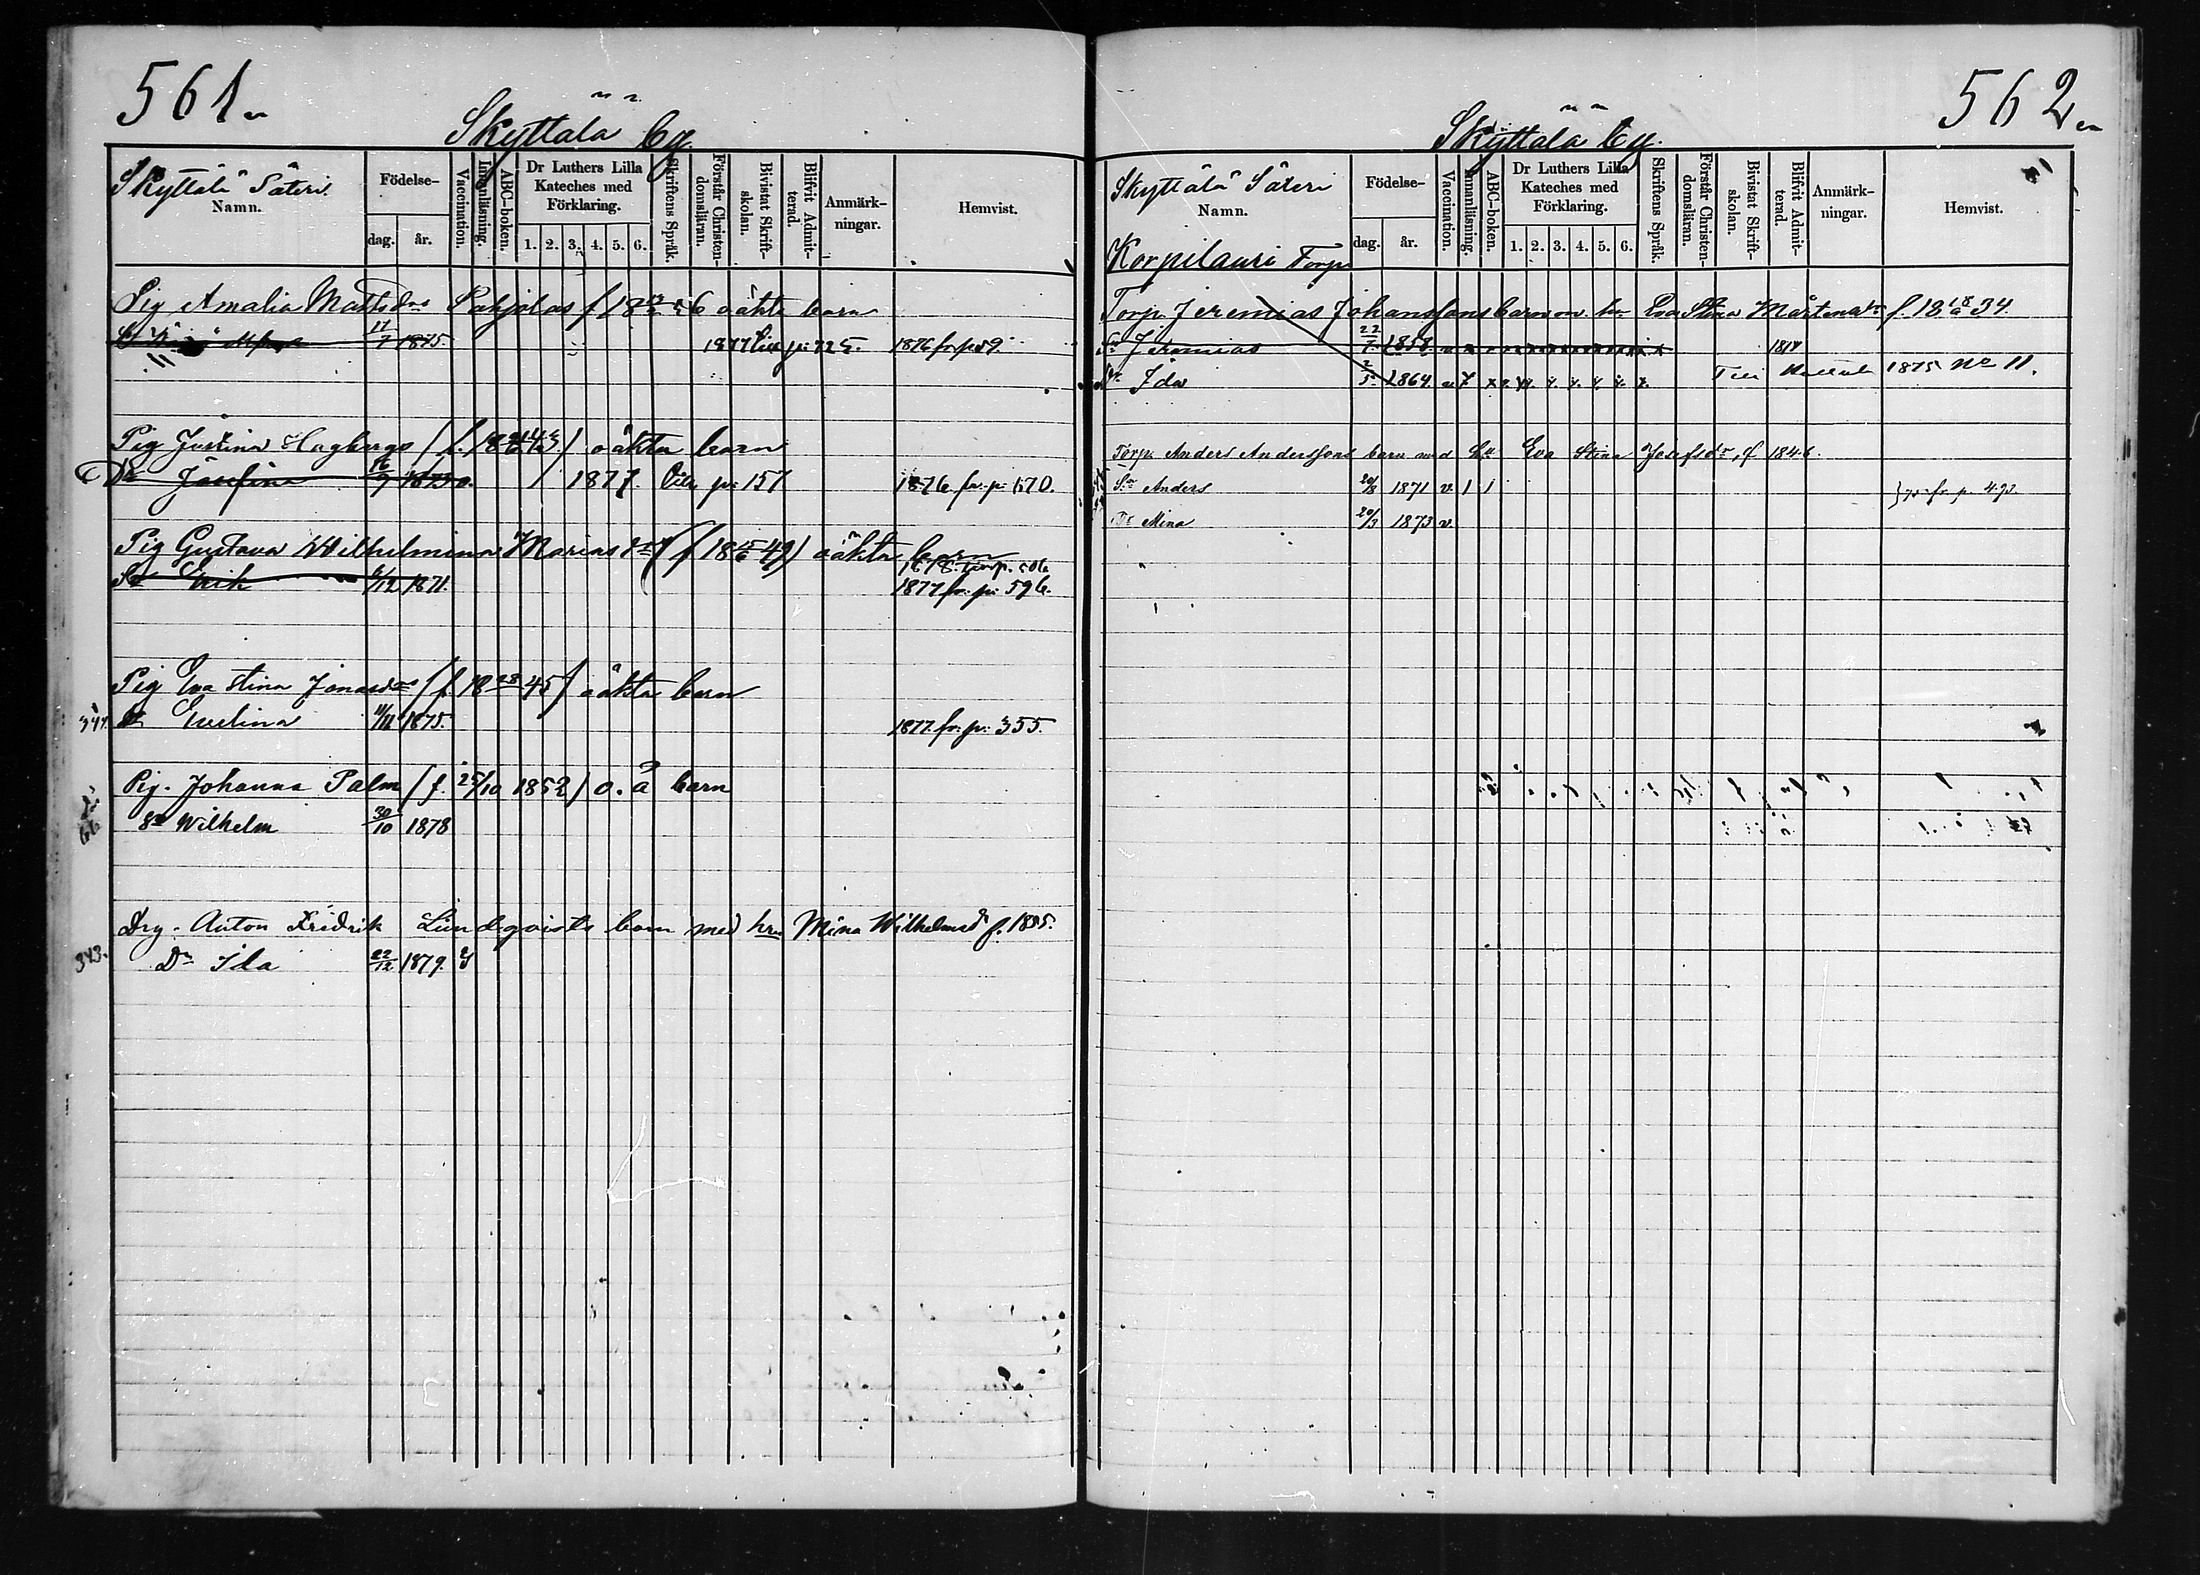 561
Skyttälä by.
Skyttälä Säteri.
Namn.
Födelse-
dag. år.
Vaccination.
Innanläsning.
ABC-boken.
Dr Luthers Lilla
Kateches med
Förklaring.
1. 2. 3. 4. 5. 6.
Skriftens Språk.
Förstår Christen-
domsläran.
Bivistat Skrift-
skolan.
Blifvit Admit-
terad.
Anmärk-
ningar.
Hemvist.
Pig Amalia Mattsdrs oäkta barn
17/7 1875. 1876 fr. p. 59.
Pig Justina Hagbergs oäkta barn
Dr Josefina 16/9 1873 1877 p: 157 1876 fr. p: 570.
Pig Gustava Wilhelmina Mariasdr (f 18 15/6 49) oäkta barn
Sn Erik 6/12 1871. 1877 fr. p: 596.
Pig Eva Stina Jonasdrs (f. 18 28 45) oäkta barn
Dr Evelina 11/11 1875. 1877. fr. p: 355.
Pig. Johanna Palm (f. 25/10 1852) o. ä barn
66
Sn Wilhelm 30/10 1878
Drg. Anton Fridrik Lundqvists barn med hru Mina Wilhelmsd f. 1855.
343.
Dr Ida 22/12 1879.
562
Skyttälä by.
Skyttälä Säteri
Namn.
Korpilauri Torp
Födelse-
dag. år.
Vaccination.
Innanläsning.
ABC-boken.
Dr Luthers Lilla
Kateches med
Förklaring.
1. 2. 3. 4. 5. 6.
Skriftens Språk.
Förstår Christen-
domsläran.
Bivistat Skrift-
skolan.
Blifvit Admit-
terad.
Anmärk-
ningar.
Hemvist.
Torp. Jeremias Johanssons barn m. hu Eva Stina Mårtensdr f. 18 18/6 34.
Sn Jeremias 22/7 1858
Dr Ida 2/5 1864. Till 1875 No 11.
Torp. Anders Anderssons barn med hu Eva Stina Josefsdr, f. 1846.
Sn Anders 20/8 1871 v. 1 1 fr. p. 493.
Dr Mina 20/3 1873 v.